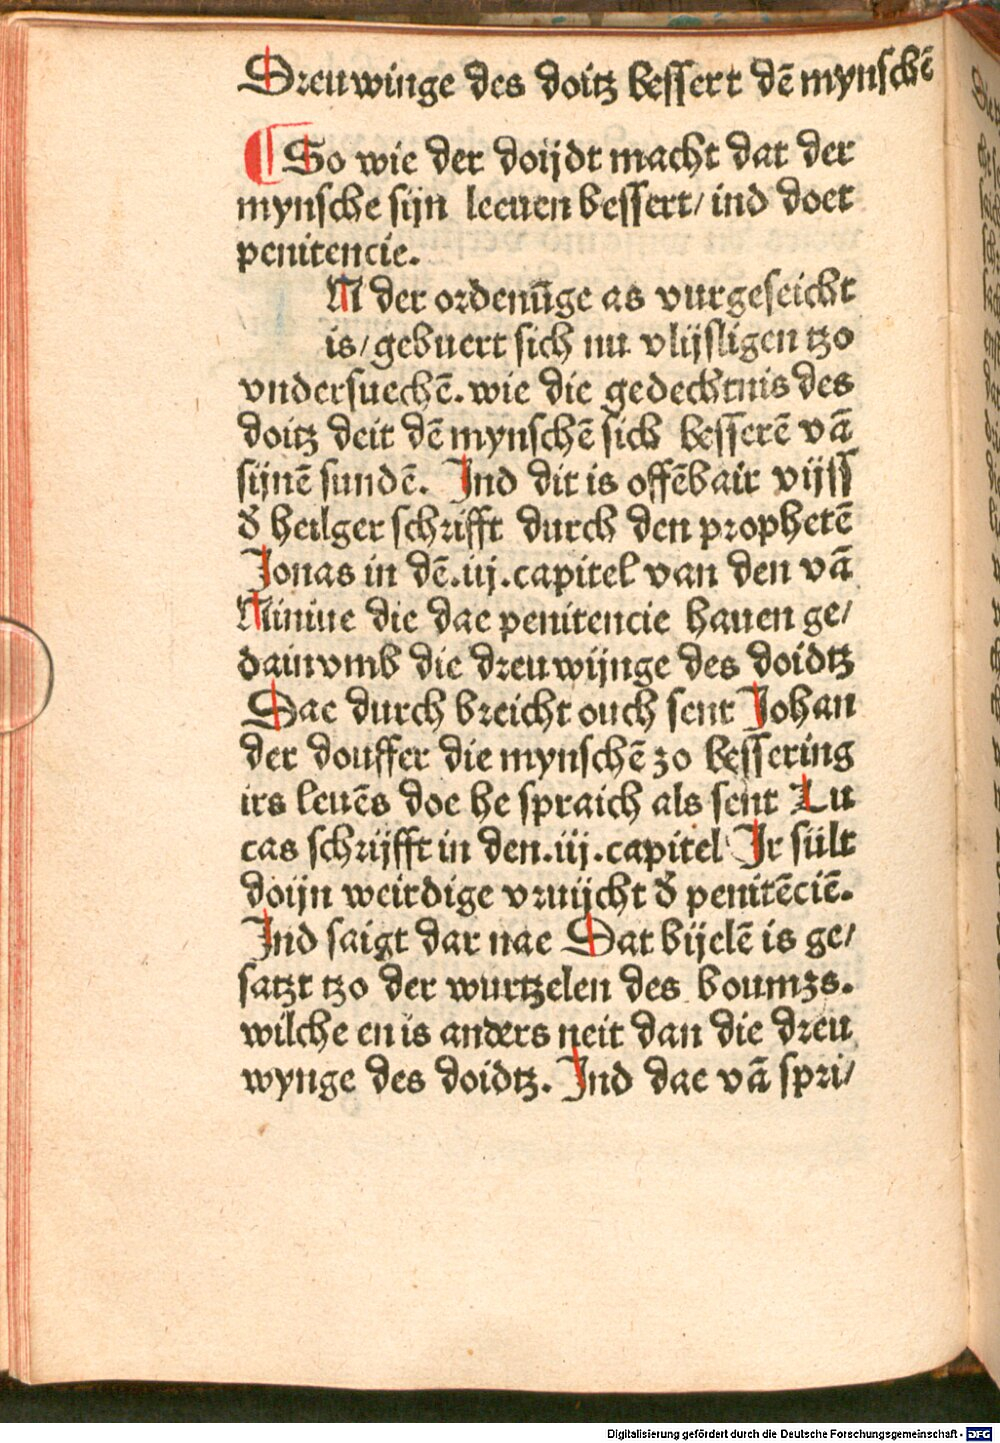 Dreuwinge des doitz bessert dē mynschē
¶ So wie der doijdt macht dat der
mynsche sijn leeuen bessert/ ind doet
penitencie.
N der ordenūge as vurgeseicht
is/ gebuert sich nu vlijsligen tzo
vndersuechē. wie die gedechtnis des
doitz deit dē mynschē sich besserē vā
sijnē sundē. Ind dit is offēbair vijss
đ heilger schrifft durch den prophetē
Jonas in dē .iij. capitel van den vā
Niniue die dae penitencie hauen ge/
dain vmb die dreuwijnge des doidtz
Dae durch breicht ouch sent Johan
der douffer die mynschē zo bessering
irs leuēs doe he spraich als sent Lu
cas schrijfft in den .iij. capitel Ir sült
doijn weirdige vruijcht đ penitēciē.
Ind saigt dar nae Dat bijelē is ge/
satzt tzo der wurtzelen des boumzs.
wilche en is anders neit dan die dreu
wynge des doidtz. Ind dae vā spri/
Digitalisierung gefördert durch die Deutsche Forschungsgemeinschaft - DFG